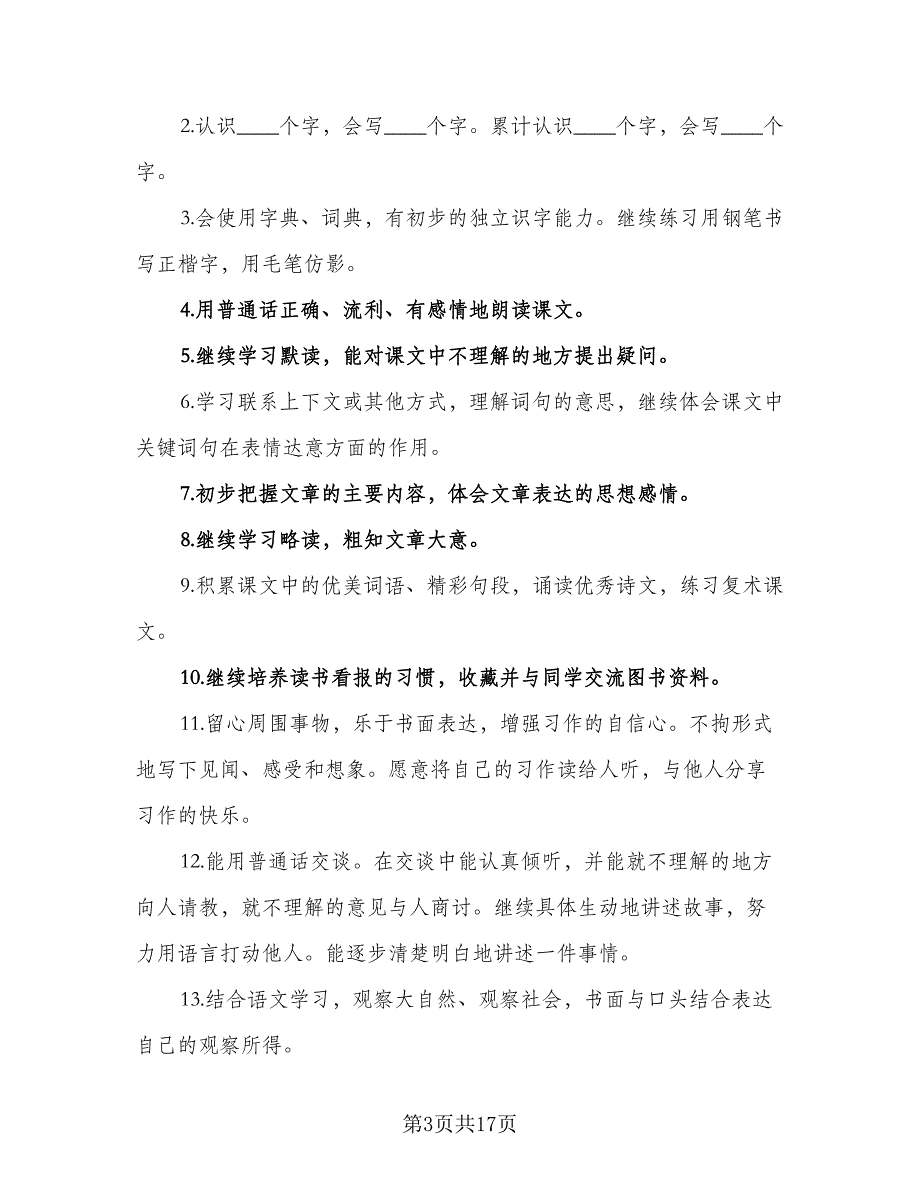 2.认识____个字，会写____个字。累计认识____个字，会写____个
字。
3.会使用字典、词典，有初步的独立识字能力。继续练习用钢笔书
写正楷字，用毛笔仿影。
4.用普通话正确、流利、有感情地朗读课文。
5.继续学习默读，能对课文中不理解的地方提出疑问。
6.学习联系上下文或其他方式，理解词句的意思，继续体会课文中
关键词句在表情达意方面的作用。
7.初步把握文章的主要内容，体会文章表达的思想感情。
8.继续学习略读，粗知文章大意。
9.积累课文中的优美词语、精彩句段，诵读优秀诗文，练习复术课
文。
10.继续培养读书看报的习惯，收藏并与同学交流图书资料。
11.留心周围事物，乐于书面表达，增强习作的自信心。不拘形式
地写下见闻、感受和想象。愿意将自己的习作读给人听，与他人分享
习作的快乐。
12.能用普通话交谈。在交谈中能认真倾听，并能就不理解的地方
向人请教，就不理解的意见与人商讨。继续具体生动地讲述故事，努
力用语言打动他人。能逐步清楚明白地讲述一件事情。
13.结合语文学习，观察大自然、观察社会，书面与口头结合表达
自己的观察所得。
第3页共17页